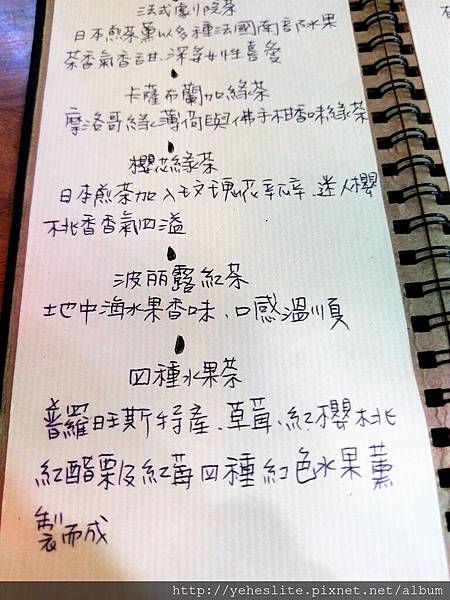 法式劇院茶
日本煎茶薰以多種法國南部水果
茶香氣香甜.深受女性喜愛
卡薩布蘭加綠茶
摩洛哥綠薄荷與佛手柑香味綠茶
櫻花綠茶
日本煎茶加入玫瑰花瓣 迷人櫻
桃香香氣四溢
波丽露紅茶
地中海水果香味、口感溫順
四種水果茶
普羅旺斯特產、草莓、紅櫻桃
紅醋栗及紅莓四種紅色水果薰
製而成
http://yeheslite.pixnet.net/album